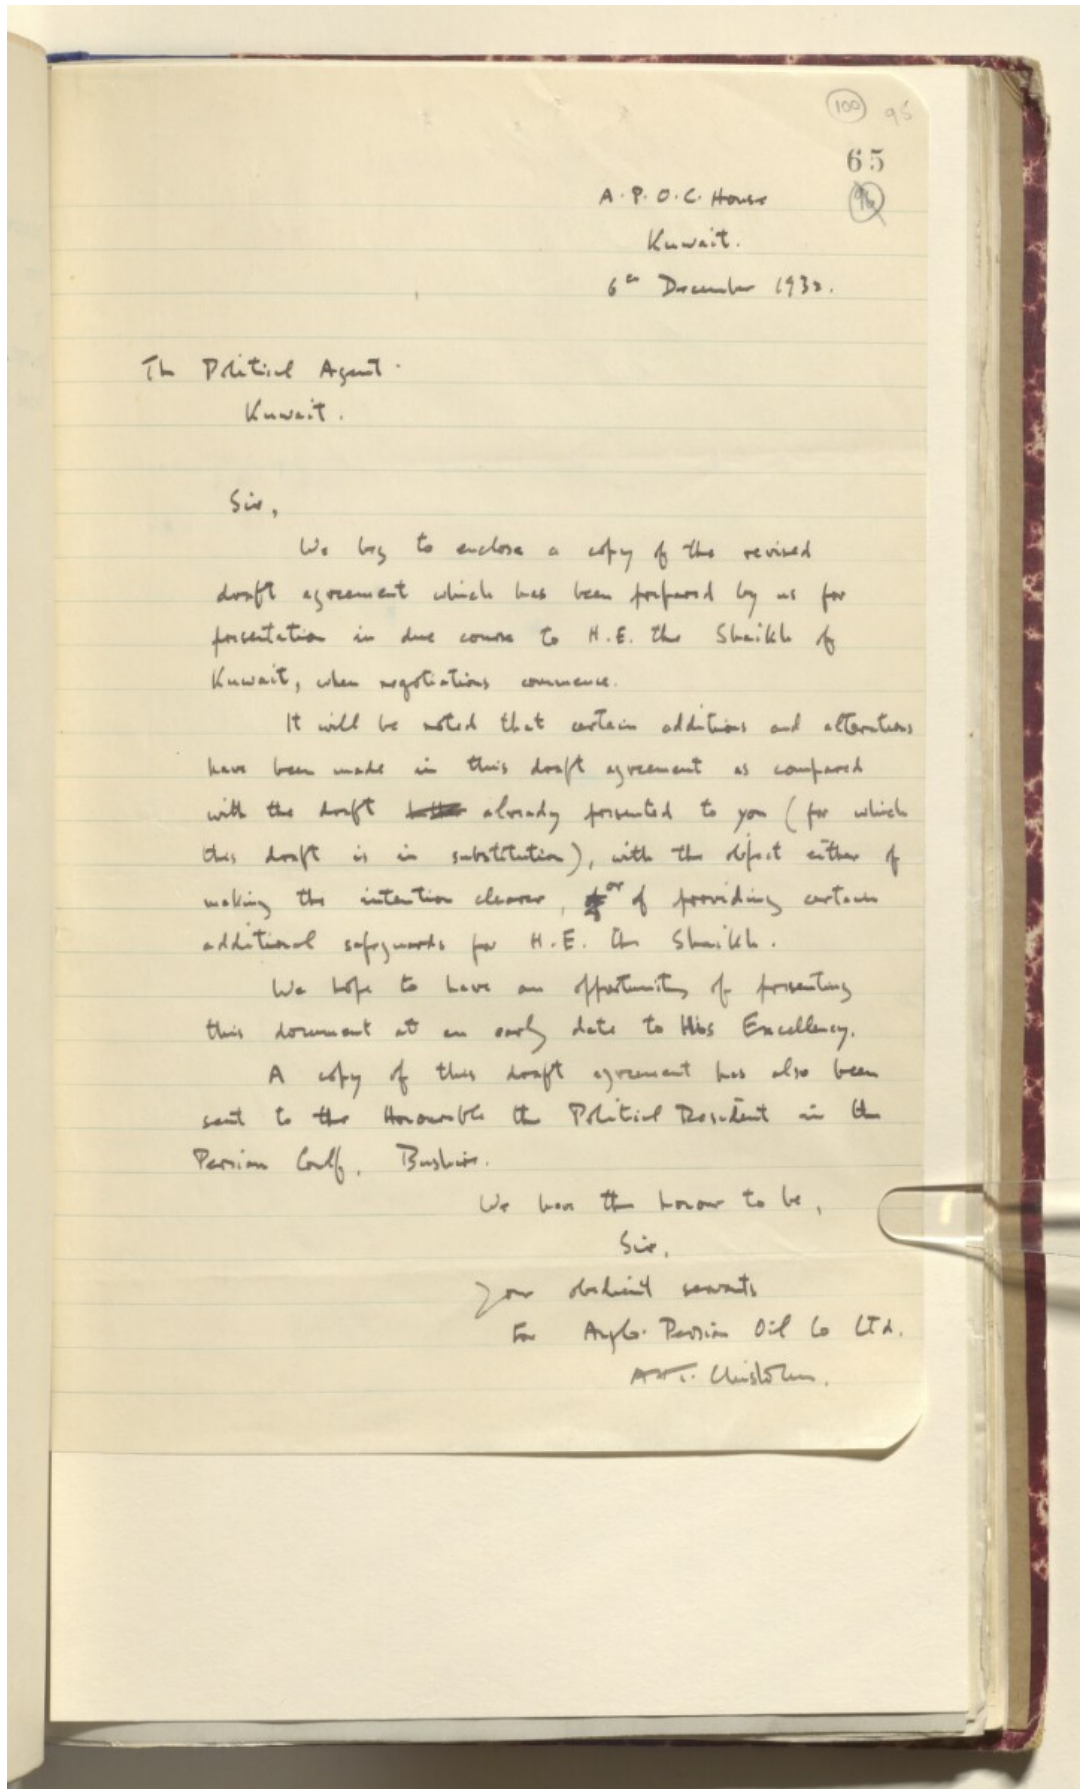 100 95
65
96
A.P.O.C. House
Kuwait.
6th December 1932.
The Political Agent.
Kuwait.
Sir,
We beg to enclose a copy of the revised
draft agreement which has been prepared by us for
presentation in due course to H.E. the Shaikh of
Kuwait, when negotiations commence.
It will be noted that certain additions and alterations
have been made in this draft agreement as compared
with the draft already presented to you (for which
this draft is in substitution), with the object either of
making the intention clearer, or of providing certain
additional safeguards for H.E. the Shaikh.
We hope to have an opportunity of presenting
this document at an early date to His Excellency.
A copy of this draft agreement has also been
sent to the Honourable the Political Resident in the
Persian Gulf, Bushire.
We have the honour to be,
Sir,
Your obedient servants
For Anglo-Persian Oil Co Ltd.
A.H.T. Chisholm.